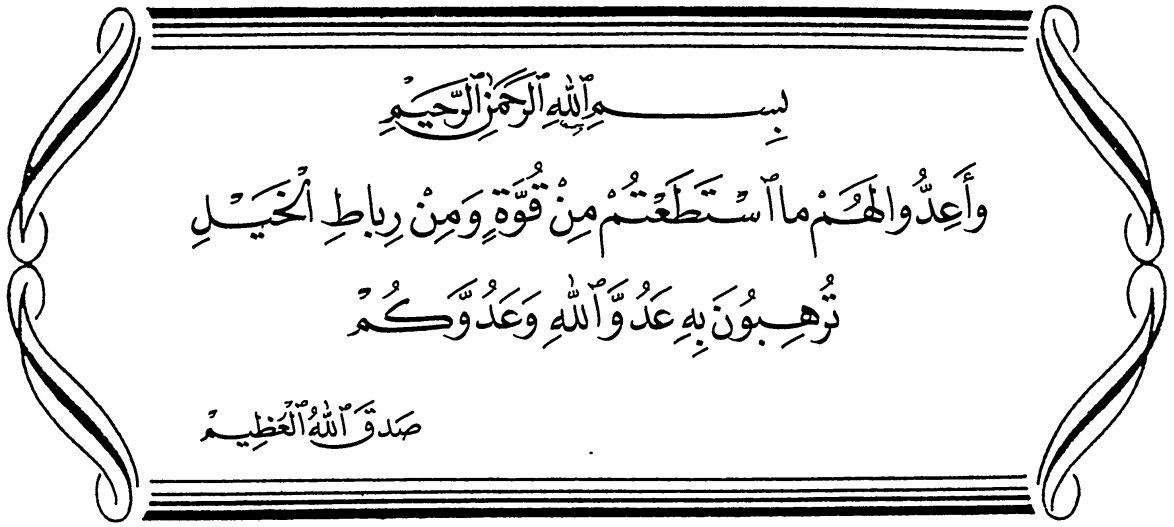 بِسْمِ ٱللَّهِ ٱلرَّحْمَٰنِ ٱلرَّحِيمِ
وَأَعِدُّوا لَهُمْ مَا ٱسْتَطَعْتُمْ مِنْ قُوَّةٍ وَمِنْ رِبَاطِ ٱلْخَيْلِ
تُرْهِبُونَ بِهِ عَدُوَّ ٱللَّهِ وَعَدُوَّكُمْ
صَدَقَ ٱللَّهُ ٱلْعَظِيمْ